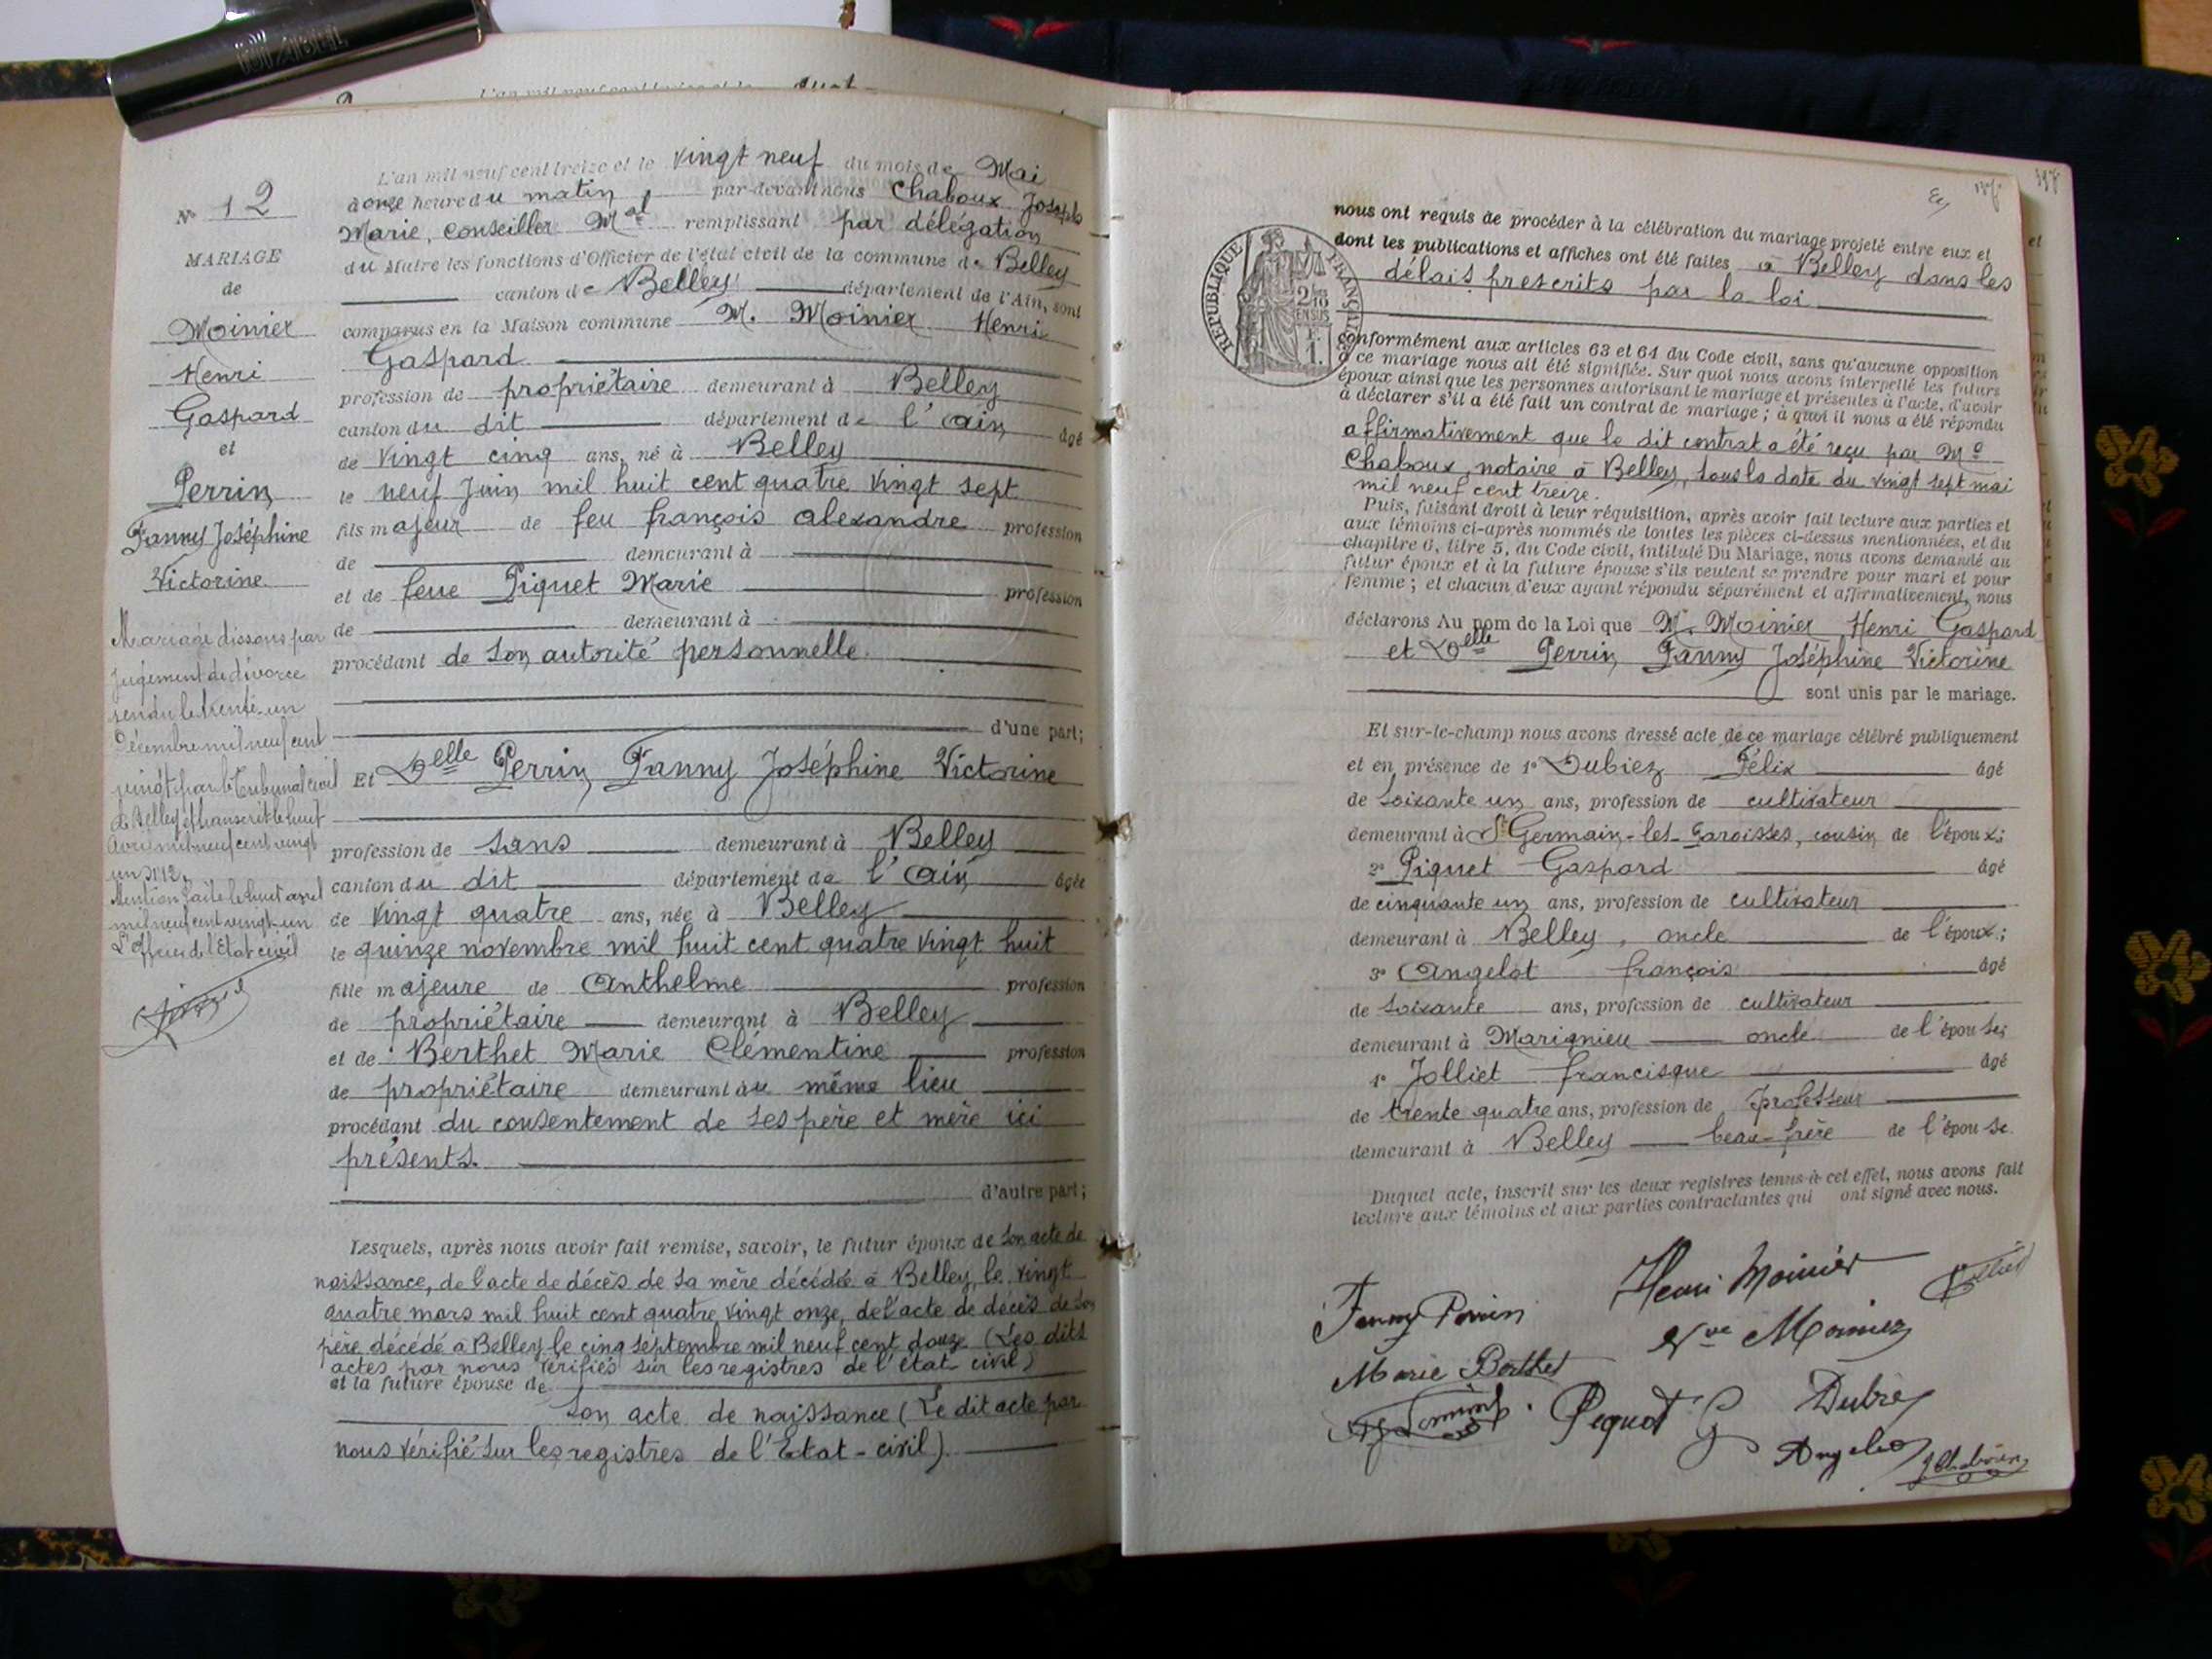 L'an mil neuf cent treize et le vingt neuf du mois de Mai
à onze heure du matin, par-devant nous Chaboux Joseph
Marie, conseiller Mal remplissant par délégation
du Maire les fonctions d'Officier de l'état civil de la commune de Belley
canton de Belley département de l'Ain, sont
comparus en la Maison commune M. Moinier Henri
Gaspard
profession de propriétaire demeurant à Belley
canton du dit département de l'Ain âgé
de vingt cinq ans, né à Belley
le neuf Juin mil huit cent quatre vingt sept
fils majeur de feu françois alexandre profession
de demeurant à
et de feue Piquet Marie profession
de demeurant à
procédant de son autorité personnelle.
d'une part;
Et Delle Perrin Fanny Joséphine Victorine
profession de sans demeurant à Belley
canton du dit département de l'Ain âgée
de vingt quatre ans, née à Belley
le quinze novembre mil huit cent quatre vingt huit
fille majeure de Anthelme profession
de propriétaire demeurant à Belley
et de Berthet Marie Clémentine profession
de propriétaire demeurant au même lieu
procédant du consentement de ses père et mère ici
présents.
d'autre part;
Lesquels, après nous avoir fait remise, savoir, le futur époux de son acte de
naissance, de l'acte de décès de sa mère décédée à Belley, le vingt
quatre mars mil huit cent quatre vingt onze, de l'acte de décès de son
père décédé à Belley le cinq septembre mil neuf cent douze (Les dits
actes par nous vérifiés sur les registres de l'état civil)
et la future épouse de
son acte de naissance (Le dit acte par
nous vérifié sur les registres de l'Etat-civil).
N° 12
MARIAGE
de
Moinier
Henri
Gaspard
et
Perrin
Fanny Joséphine
Victorine
Mariage dissous par
jugement de divorce
rendu le trente-un
Décembre mil neuf cent
vingt par le Tribunal civil
de Belley et transcrit le huit
avril mil neuf cent vingt
un N°12.
Mention faite le huit avril
mil neuf cent vingt-un
L'Officier de l'Etat civil
137
197
nous ont requis de procéder à la célébration du mariage projeté entre eux et
dont les publications et affiches ont été faites à Belley dans les
délais prescrits par la loi
RÉPUBLIQUE FRANÇAISE
2/10
EN SUS
1F.
conformément aux articles 63 et 64 du Code civil, sans qu'aucune opposition
à ce mariage nous ait été signifiée. Sur quoi nous avons interpellé les futurs
époux ainsi que les personnes autorisant le mariage et présentes à l'acte, d'avoir
à déclarer s'il a été fait un contrat de mariage; à quoi il nous a été répondu
affirmativement que le dit contrat a été reçu par Me
Chaboux, notaire à Belley, sous la date du vingt sept mai
mil neuf cent treize.
Puis, faisant droit à leur réquisition, après avoir fait lecture aux parties et
aux témoins ci-après nommés de toutes les pièces ci-dessus mentionnées, et du
chapitre 6, titre 5, du Code civil, intitulé Du Mariage, nous avons demandé au
futur époux et à la future épouse s'ils veulent se prendre pour mari et pour
femme; et chacun d'eux ayant répondu séparément et affirmativement, nous
déclarons Au nom de la Loi que M. Moinier Henri Gaspard
et Delle Perrin Fanny Joséphine Victorine
sont unis par le mariage.
Et sur-le-champ nous avons dressé acte de ce mariage célébré publiquement
et en présence de 1° Dubiez Félix âgé
de soixante un ans, profession de cultivateur
demeurant à St Germain-les-Paroisses, cousin de l'époux;
2° Piquet Gaspard âgé
de cinquante un ans, profession de cultivateur
demeurant à Belley, oncle de l'époux;
3° Angelot françois âgé
de soixante ans, profession de cultivateur
demeurant à Marignieu oncle de l'épouse;
4° Jolliet francisque âgé
de trente quatre ans, profession de professeur
demeurant à Belley beau-frère de l'épouse.
Duquel acte, inscrit sur les deux registres tenus à cet effet, nous avons fait
lecture aux témoins et aux parties contractantes qui ont signé avec nous.
Henri Moinier
Fanny Perrin
Vve Moinier
Marie Berthet
Piquet G
Dubiez
Angelot